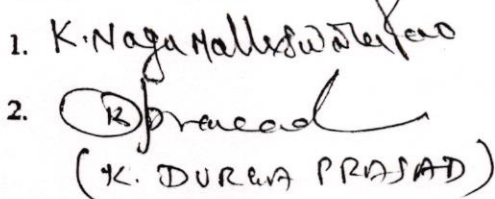 1. K. Naga Malleswara Rao
2. K Prasad
(K. DURGA PRASAD)